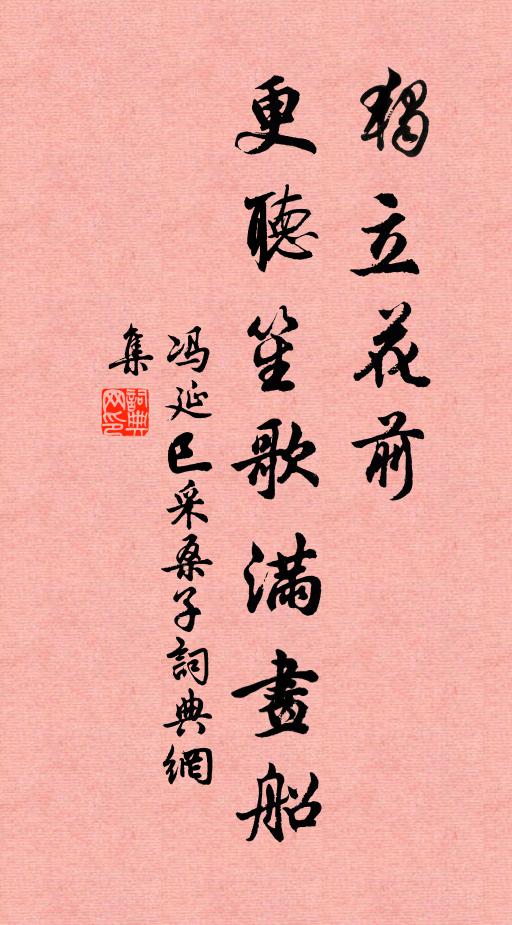 獨立花前
更聽笙歌滿畫船
冯延巳采桑子詞典網
集
詞典网印